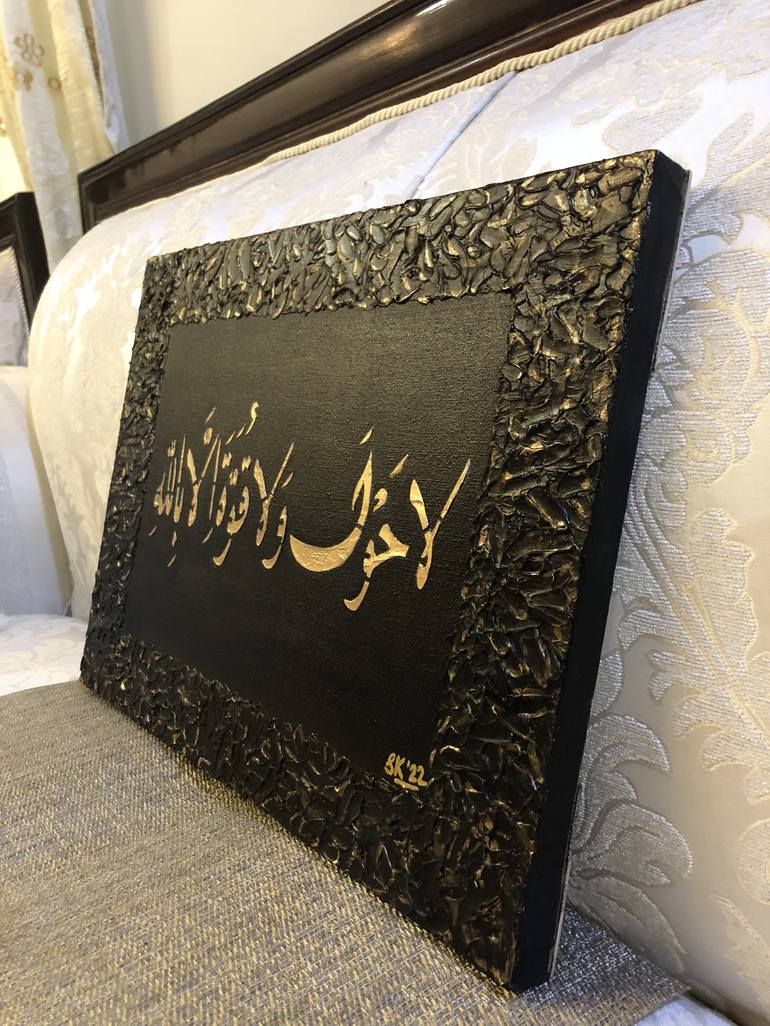 لا حَوْلَ وَلا قُوَّةَ إِلَّا بِاللّٰهِ
SK '22